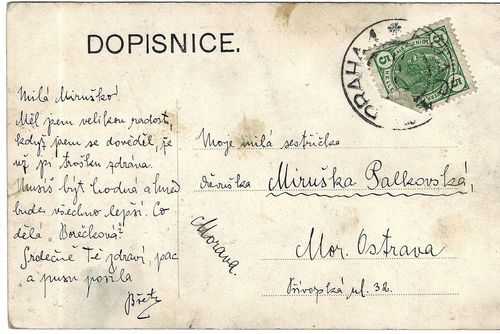 DOPISNICE.
PRAHA 1
5
5
Milá Miruško!
Měl jsem velikou radost,
když jsem se dověděl, že
už jsi trošku zdráva.
Musíš být hodná a hned
bude všechno lepší. Co
dělá „Borečková"?
Srdečně Tě zdraví, pac
a pusu posílá
Břeťa
Moje milá sestřička
děvuška Miruška Palkovská,
Morava.
Mor. Ostrava
Přívozská ul. 32.